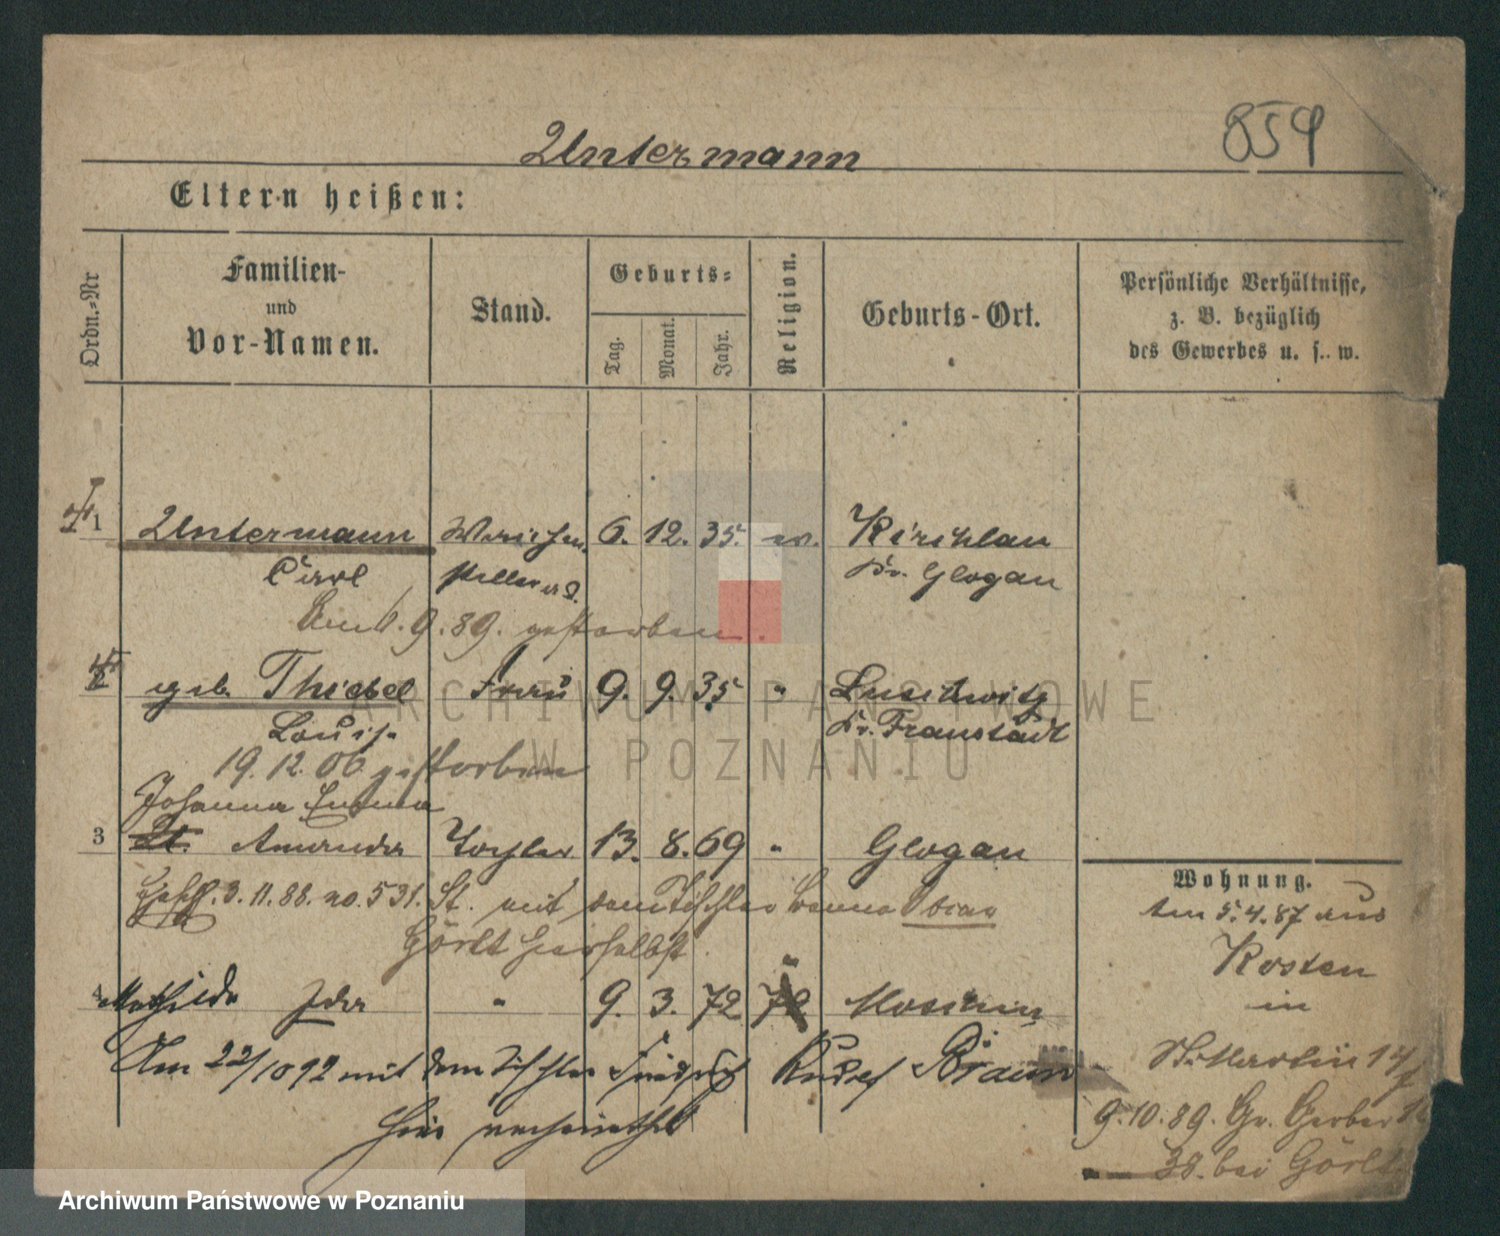 859
Untermann
Eltern heißen:
Ordn.-Nr
Familien-
und
Vor-Namen.
Stand.
Geburts-
Tag.
Monat.
Jahr.
Religion.
Geburts-Ort.
Persönliche Verhältnisse,
z. B. bezüglich
des Gewerbes u. s. w.
1 Untermann Weichen 6. 12. 35. ev. Kirchlau
Carl steller a.D. Kr. Glogau
Am 6. 9. 89. gestorben.
2 geb. Thiebel Frau 9. 9. 35 " Luschwitz
Louise Kr. Fraustadt
19. 12. 06 gestorben
Johanna Emma
3 Amanda Tochter 13. 8. 69 " Glogau
3. 11. 88. no. 531. St. mit dem Tischler
Görlt hierselbst
4 Mathilde Ida " 9. 3. 72 " Moschin
Am 22/10 92 mit dem Tischler Rudolf Braun
hier verheirathet
Wohnung.
Am 5. 4. 87 aus
Kosten
in
St. Martin
9. 10. 89. Gr. Gerber
38. bei Görlt
ARCHIWUM PAŃSTWOWE
W POZNANIU
Archiwum Państwowe w Poznaniu